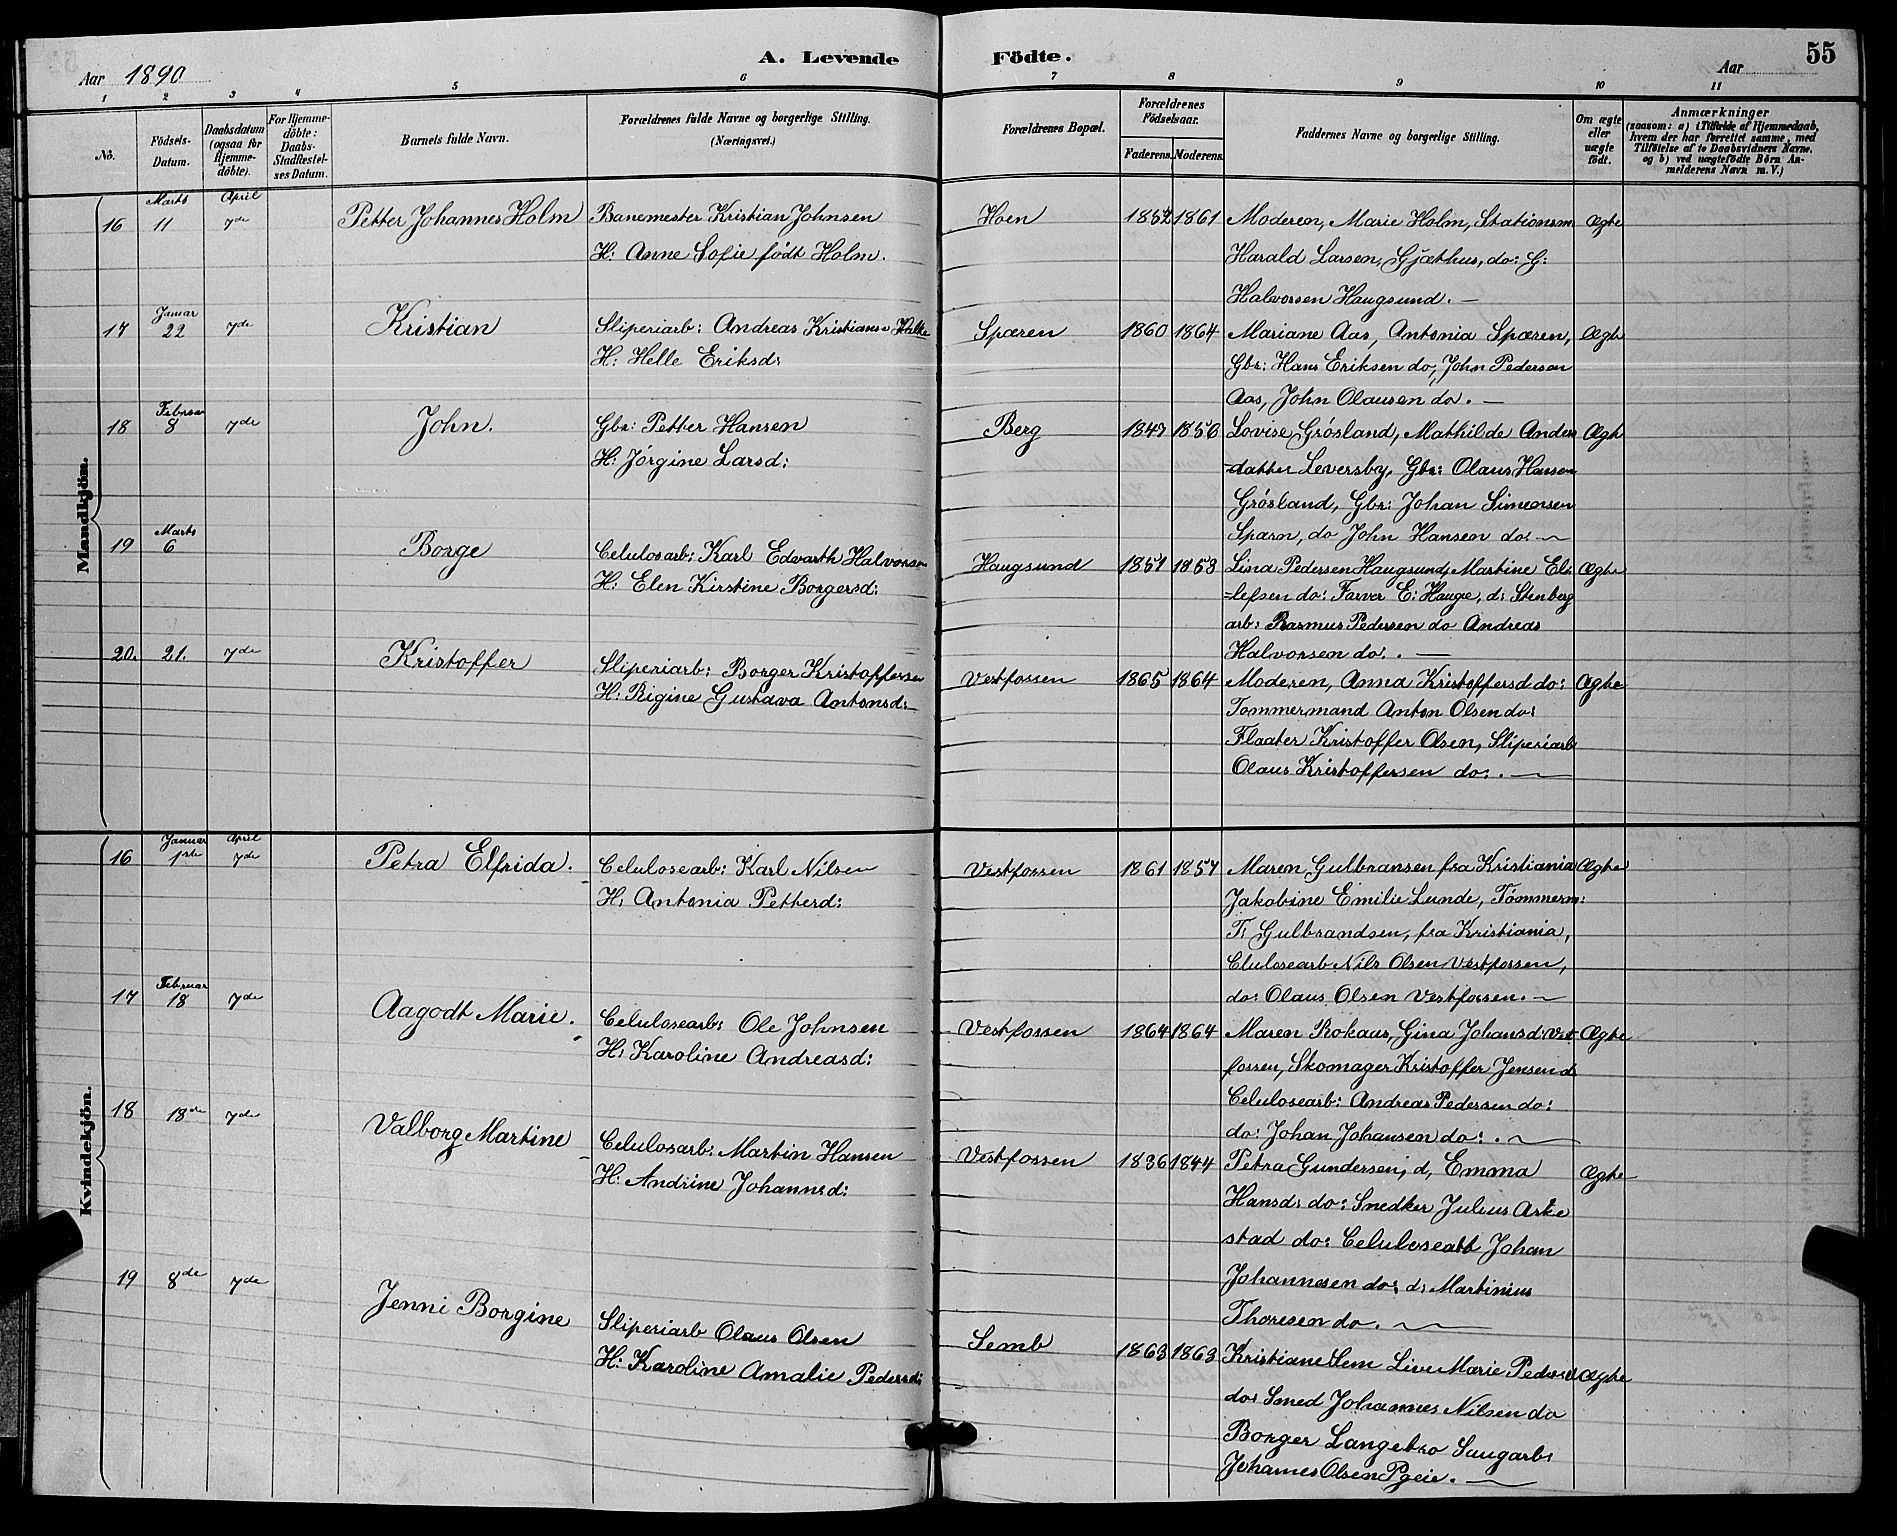 A. Levende Födte.
55
Aar 1890
Aar
1 2 3 4 5 6 7 8 9 10 11
No.
Födsels-Datum.
Daabsdatum (ogsaa for Hjemme-döbte).
For Hjemme-döbte: Daabs-Stadfæstel-ses Datum.
Barnets fulde Navn.
Forældrenes fulde Navne og borgerlige Stilling. (Næringsvei.)
Forældrenes Bopæl.
Forældrenes Födselsaar.
Faderens. Moderens.
Faddernes Navne og borgerlige Stilling.
Om ægte eller uægte födt.
Anmærkninger
(saasom: a) i Tilfælde af Hjemmedaab, hvem der har forrettet samme, med Tilföielse af to Daabsvidners Navne. og b) ved uægtefödte Börn An-melderens Navn m. V.)
Mandkjön.
Marts April
16 11 7de Petter Johannes Holm Banemester Kristian Johnsen Hoen 1852 1861 Moderen, Marie Holm, Stationsm Ægte
H: Anne Sofie født Holm. Harald Larsen, Gjæthus, do: G:
Halvorsen Haugsund. —
Januar
17 22 7de Kristian Sliperiarb: Andreas Kristiansen Spæren 1860 1864 Mariane Aas, Antonia Spæren, Ægte
H: Helle Eriksd: Gbr: Hans Eriksen do, John Pedersen
Aas, John Olausen do. —
Februar
18 8 7de John. Gbr: Petter Hansen Berg 1849 1856 Lovise Grøsland, Mathilde Anders Ægte
H: Jørgine Larsd: -datter Leversby, Gbr: Olaus Hansen
Grøsland, Gbr: Johan Simensen
Spæren, do John Hansen do: —
Marts
19 6 Borge Celulosarb: Karl Edvarth Halvorsen Haugsund 1851 1853 Lina Pedersen Haugsund, Martine El: Ægte
H: Elen Kirstine Borgersd: =lefsen do: Farver E: Hauge, d: Stenberg
arb: Rasmus Pedersen do Andreas
Halvorsen do: . —
20. 21. 7de Kristoffer Sliperiarb: Borger Kristoffersen Vestfossen 1865 1864 Moderen, Anna Kristoffersd do: Ægte
H: Rigine Gustava Antonsd: Tømmermand Anton Olsen do:
Flaater Kristoffer Olsen, Sliperiarb
Olaus Kristoffersen do: . —
Kvindekjön.
Januar April
16 1ste 7de Petra Elfrida. Celulosearb: Karl Nilsen Vestfossen 1861 1857 Maren Gulbransen fra Kristiania Ægte
H: Antonia Petterd: Jakobine Emilie Lunde, Tømmerm:
T: Gulbrandsen, fra Kristiania,
Clulosearb Nils Olsen Vestfossen,
do: Olaus Olsen Vestfossen. —
Februar
17 18 7de Aagodt Marie. Celulosearb: Ole Johnsen Vestfossen 1864 1864 Maren Rokaas, Gina Johansd: Vest Ægte
H: Karoline Andreasd: fossen, Skomager Kristoffer Jensen d:
Celulosearb: Andreas Pedersen do:
do: Johan Johansen do: . —
18 18de 7de Valborg Martine Celulosarb: Martin Hansen Vestfossen 1836 1844 Petra Gundersen, d, Emma Ægte
H: Andrine Johannesd: Hansd: do: Snedker Julius Aske
stad do: Celulosearb Johan
Johannesen do: d: Martinius
Thoresen do. —
19 8de 7de Jenni Borgine Sliperiarb Olaus Olsen Semb 1863 1863 Kristiane Sem Live Marie Pedersd Ægte
H: Karoline Amalie Pedersd: do: Smed Johannes Nilsen do
Borger Langebro Saugarb:
Johannes Olsen. —